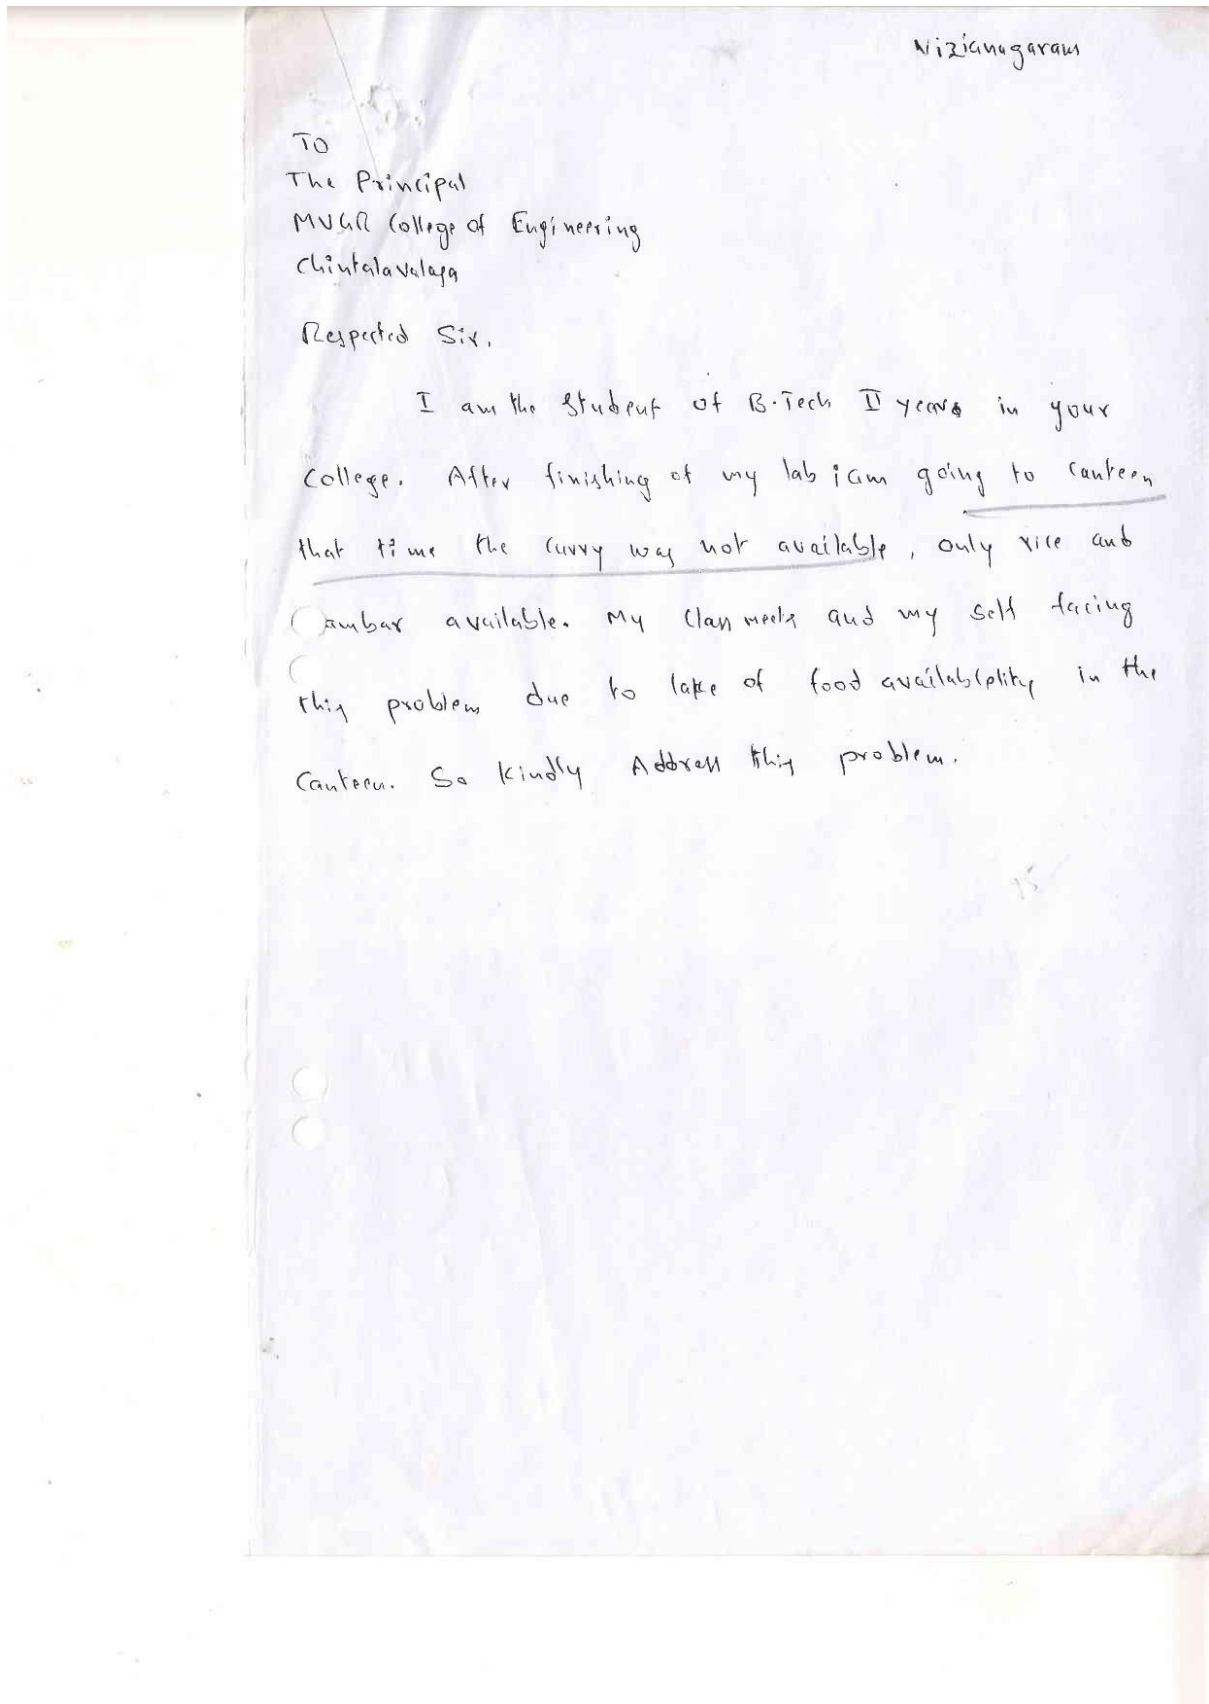 Vizianagaram
TO
The Principal
MVGR College of Engineering
Chintalavalasa
Respected Sir,
I am the Student of B.Tech II years in your
College. After finishing of my lab iam going to canteen
that time the curry was not available, only rice and
ambar available. My Classmeets and my self facing
this problem due to lake of food availability in the
Canteen. So kindly Address this problem.